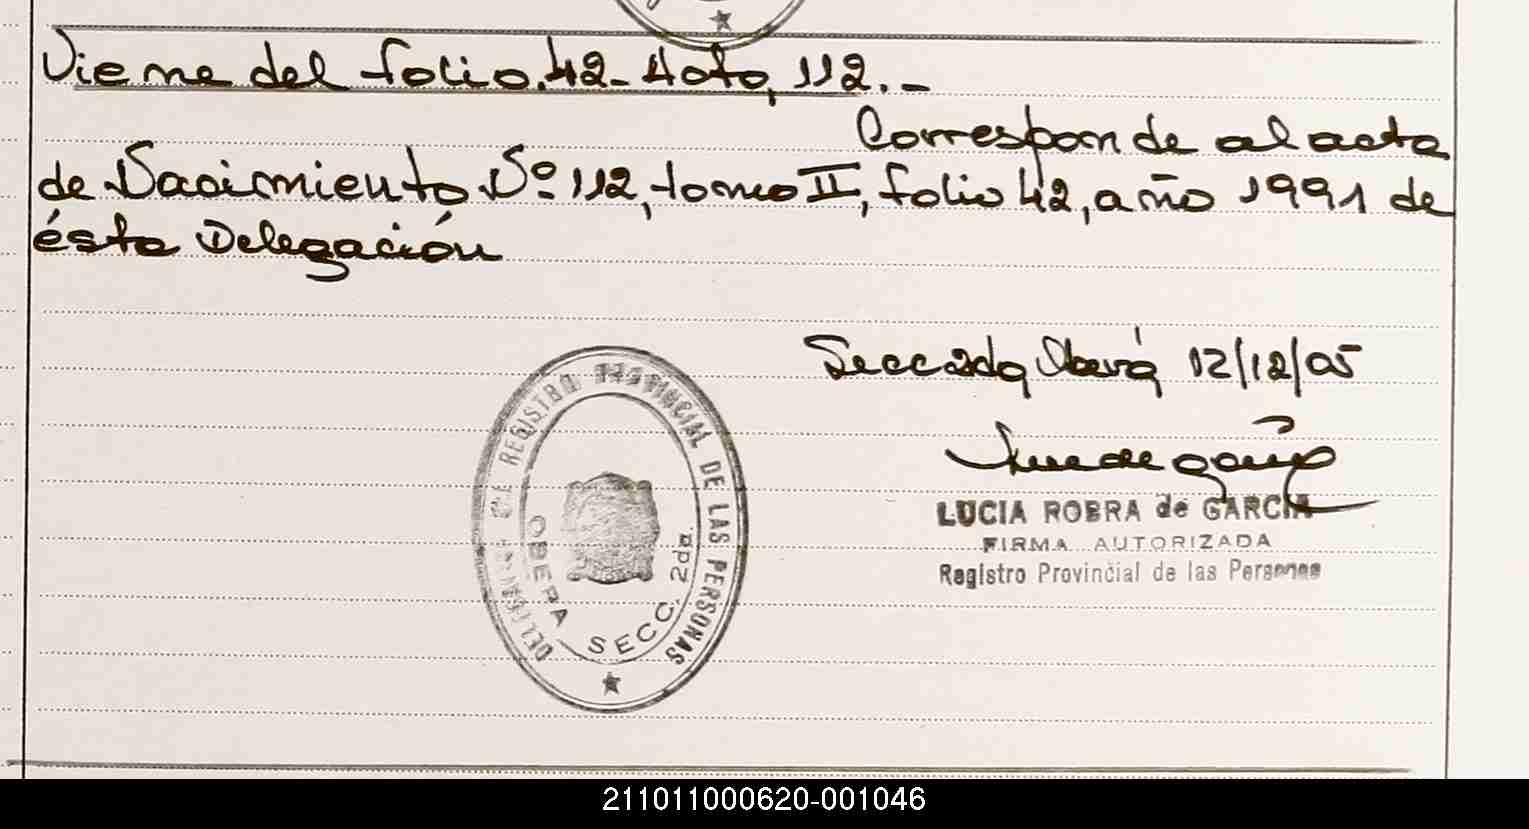 Viene del folio. 42- Acta, 112.-
Corresponde al acta
de Nacimiento Nº 112, tomo II, folio 42, año 1991 de
ésta Delegación
Secc 2da Oberá 12/12/05
LUCIA ROBRA de GARCIA
FIRMA AUTORIZADA
Registro Provincial de las Personas
REGISTRO PROVINCIAL DE LAS PERSONAS
OBERA SECC. 2da.
211011000620-001046